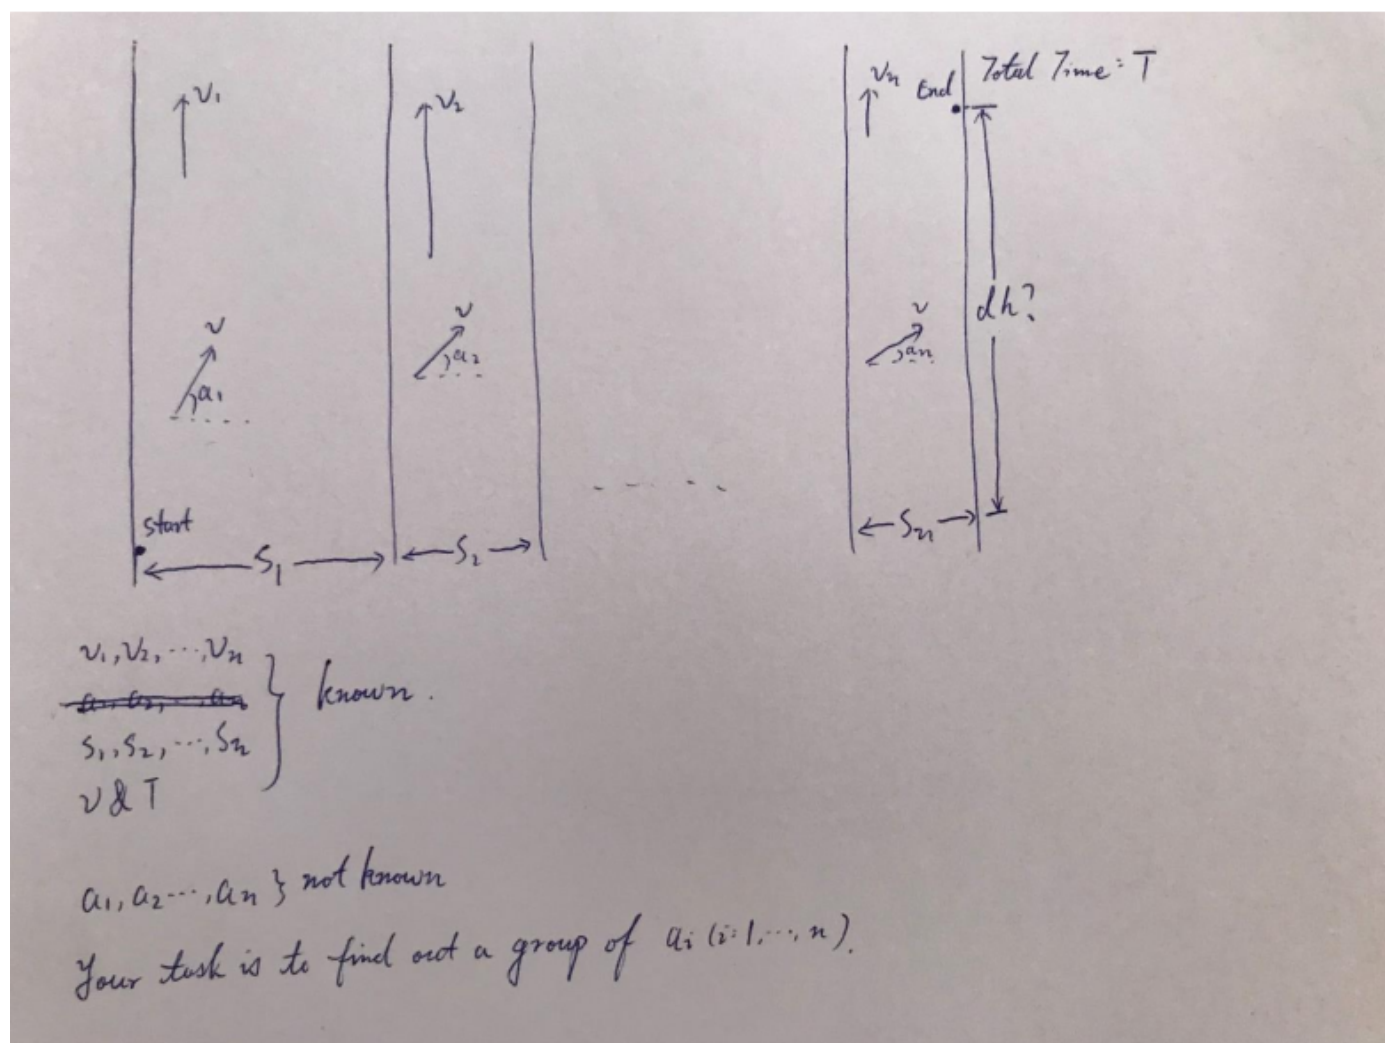 v₁
v₂
vₙ
End
Total Time: T
v
v
v
a₁
a₂
aₙ
dh?
Start
S₁
S₂
.....
Sₙ
v₁, v₂, ..., vₙ
a₁, a₂, ..., aₙ
s₁, s₂, ..., sₙ
v & T
} known.
a₁, a₂ ..., aₙ } not known
Your task is to find out a group of aᵢ (i=1, ..., n).